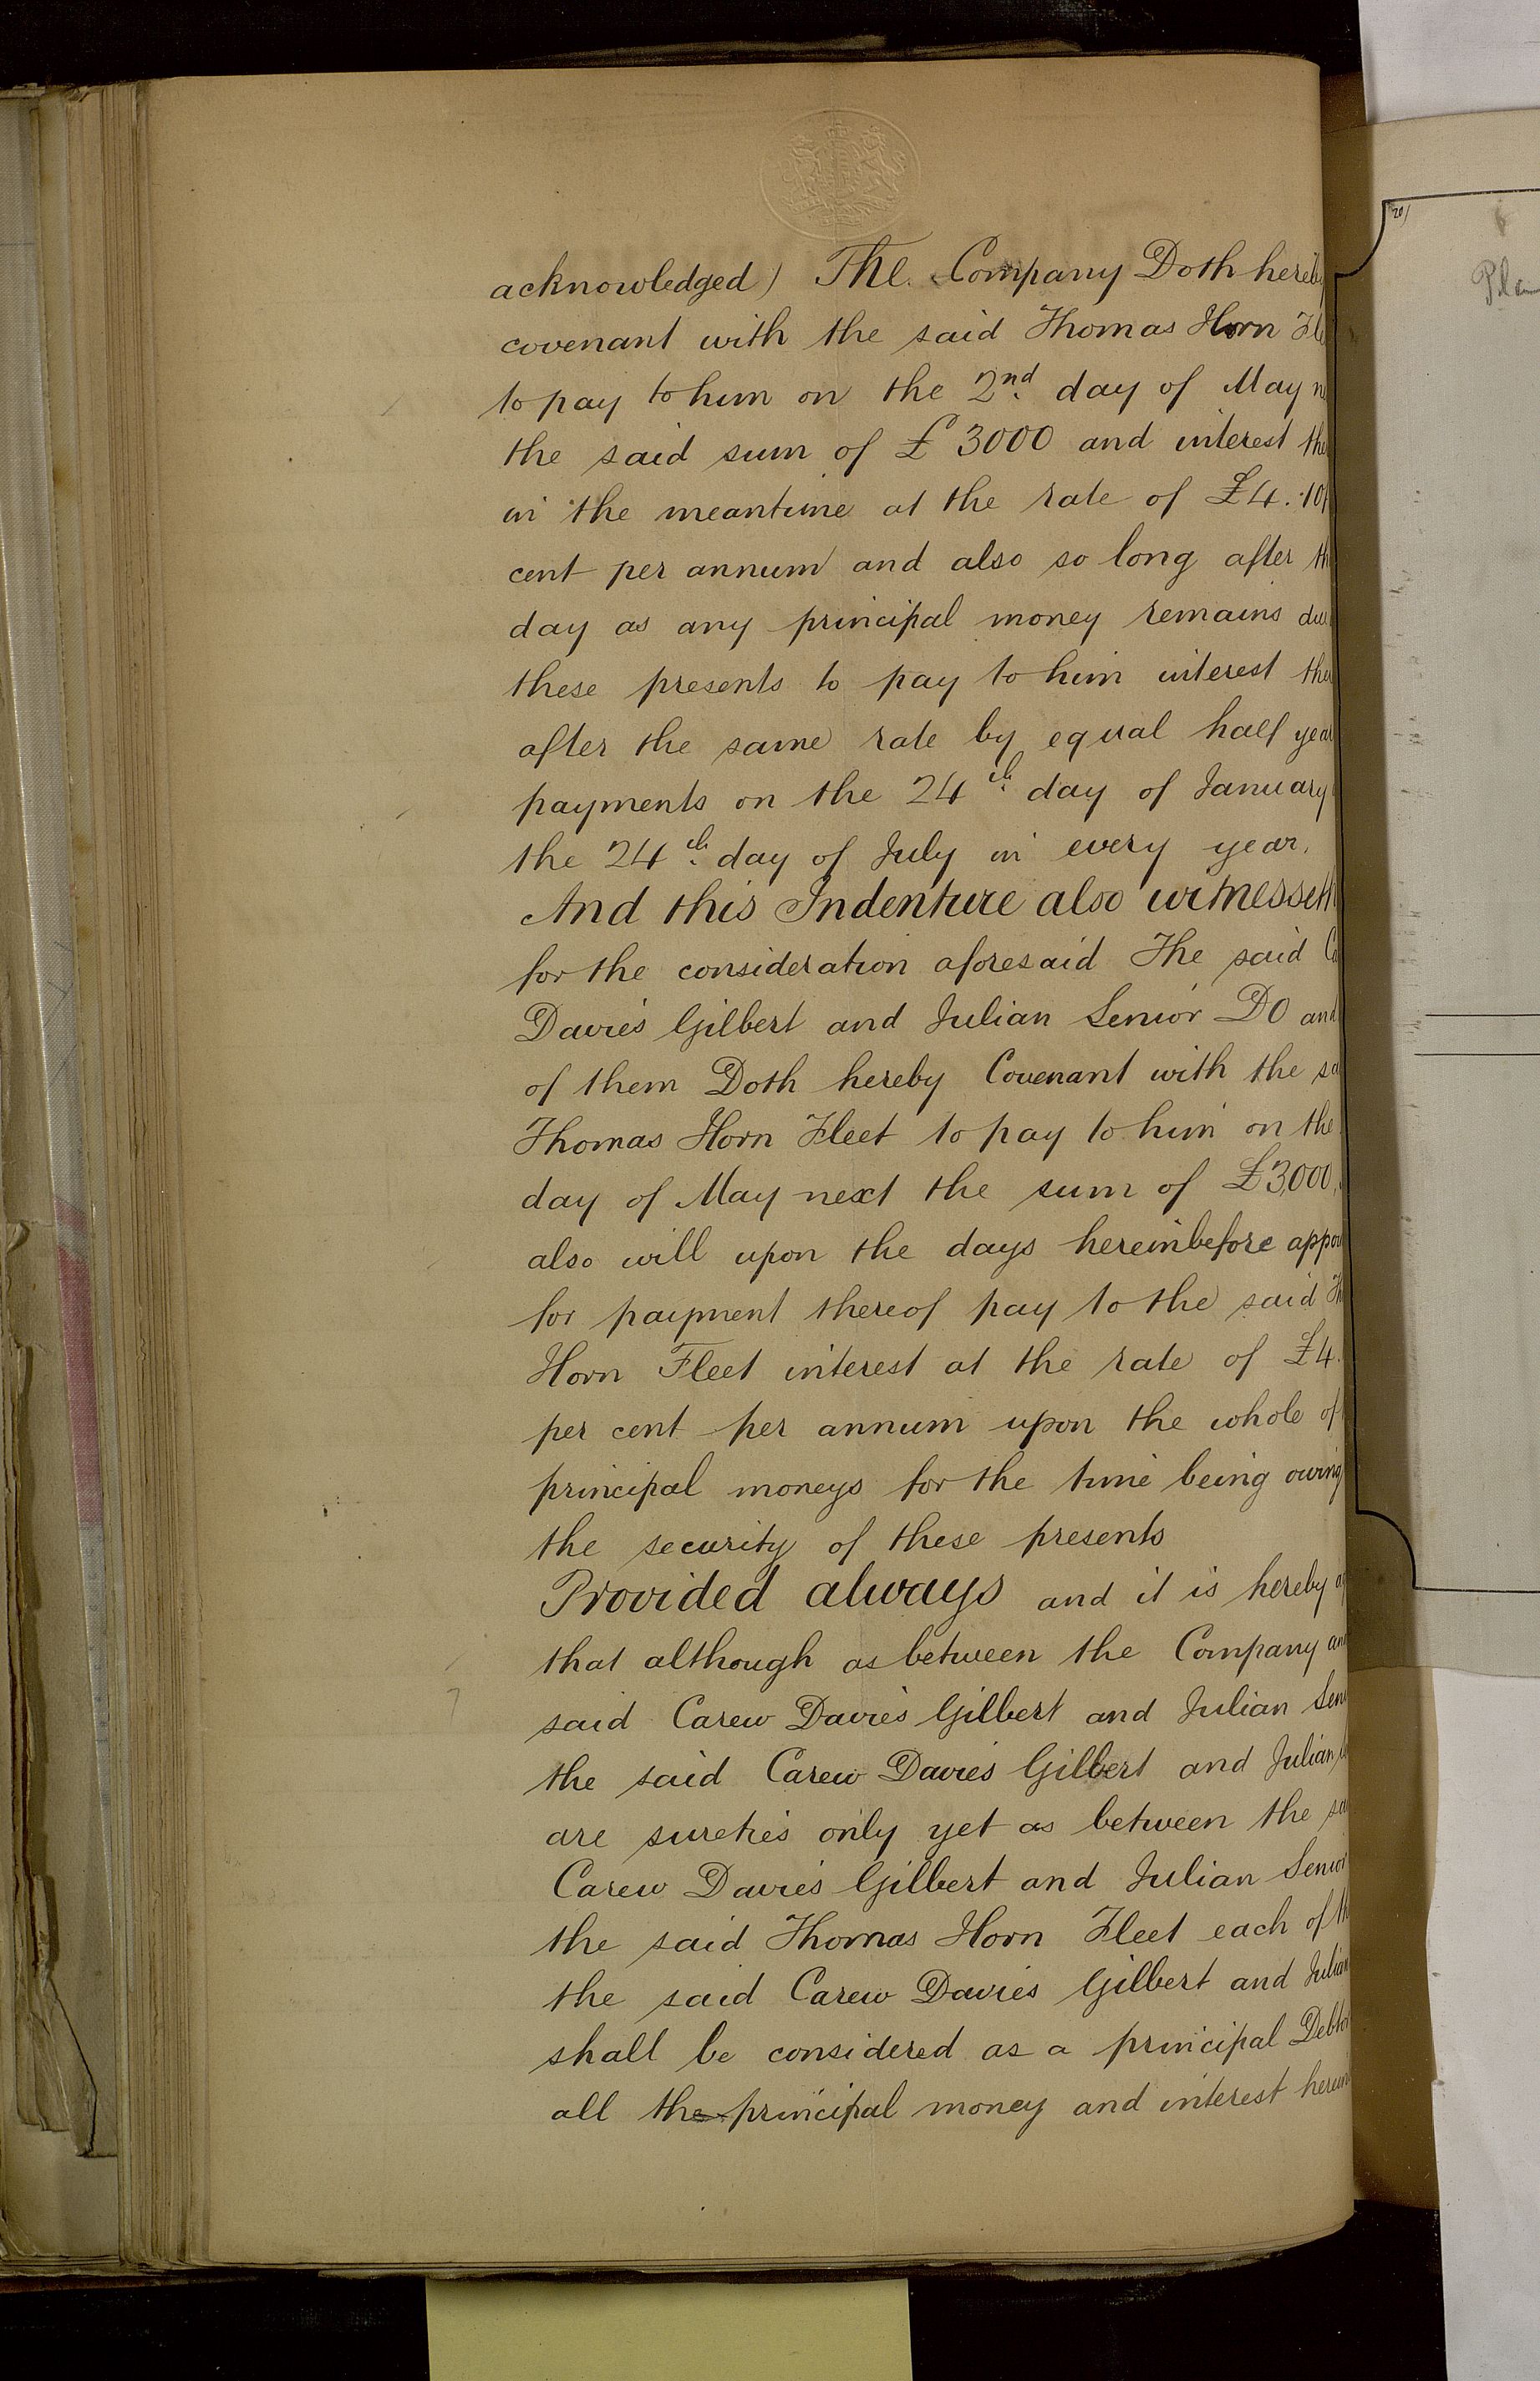 acknowledged) The Company Doth hereby
covenant with the said Thomas Horn Fle
to pay to him on the 2nd day of May n
the said sum of £3000 and interest the
in the meantime at the rate of £4.10
cent per annum and also so long after th
day as any principal money remains due
these presents to pay to him interest the
after the same rate by equal half year
payments on the 24th day of January
the 24th day of July in every year.
And this Indenture also witnesseth
for the consideration aforesaid The said Ca
Davies Gilbert and Julian Senior DO and
of them Doth hereby Covenant with the sa
Thomas Horn Fleet to pay to him on the
day of May next the sum of £3,000,
also will upon the days hereinbefore appoi
for payment thereof pay to the said Th
Horn Fleet interest at the rate of £4.
per cent per annum upon the whole of
principal moneys for the time being owing
the security of these presents
Provided always and it is hereby a
that although as between the Company an
said Carew Davies Gilbert and Julian Sen
the said Carew Davies Gilbert and Julian
are sureties only yet as between the sa
Carew Davies Gilbert and Julian Senior
the said Thomas Horn Fleet each of th
the said Carew Davies Gilbert and Julian
shall be considered as a principal Debtor
all the principal money and interest herein
20/
Plan